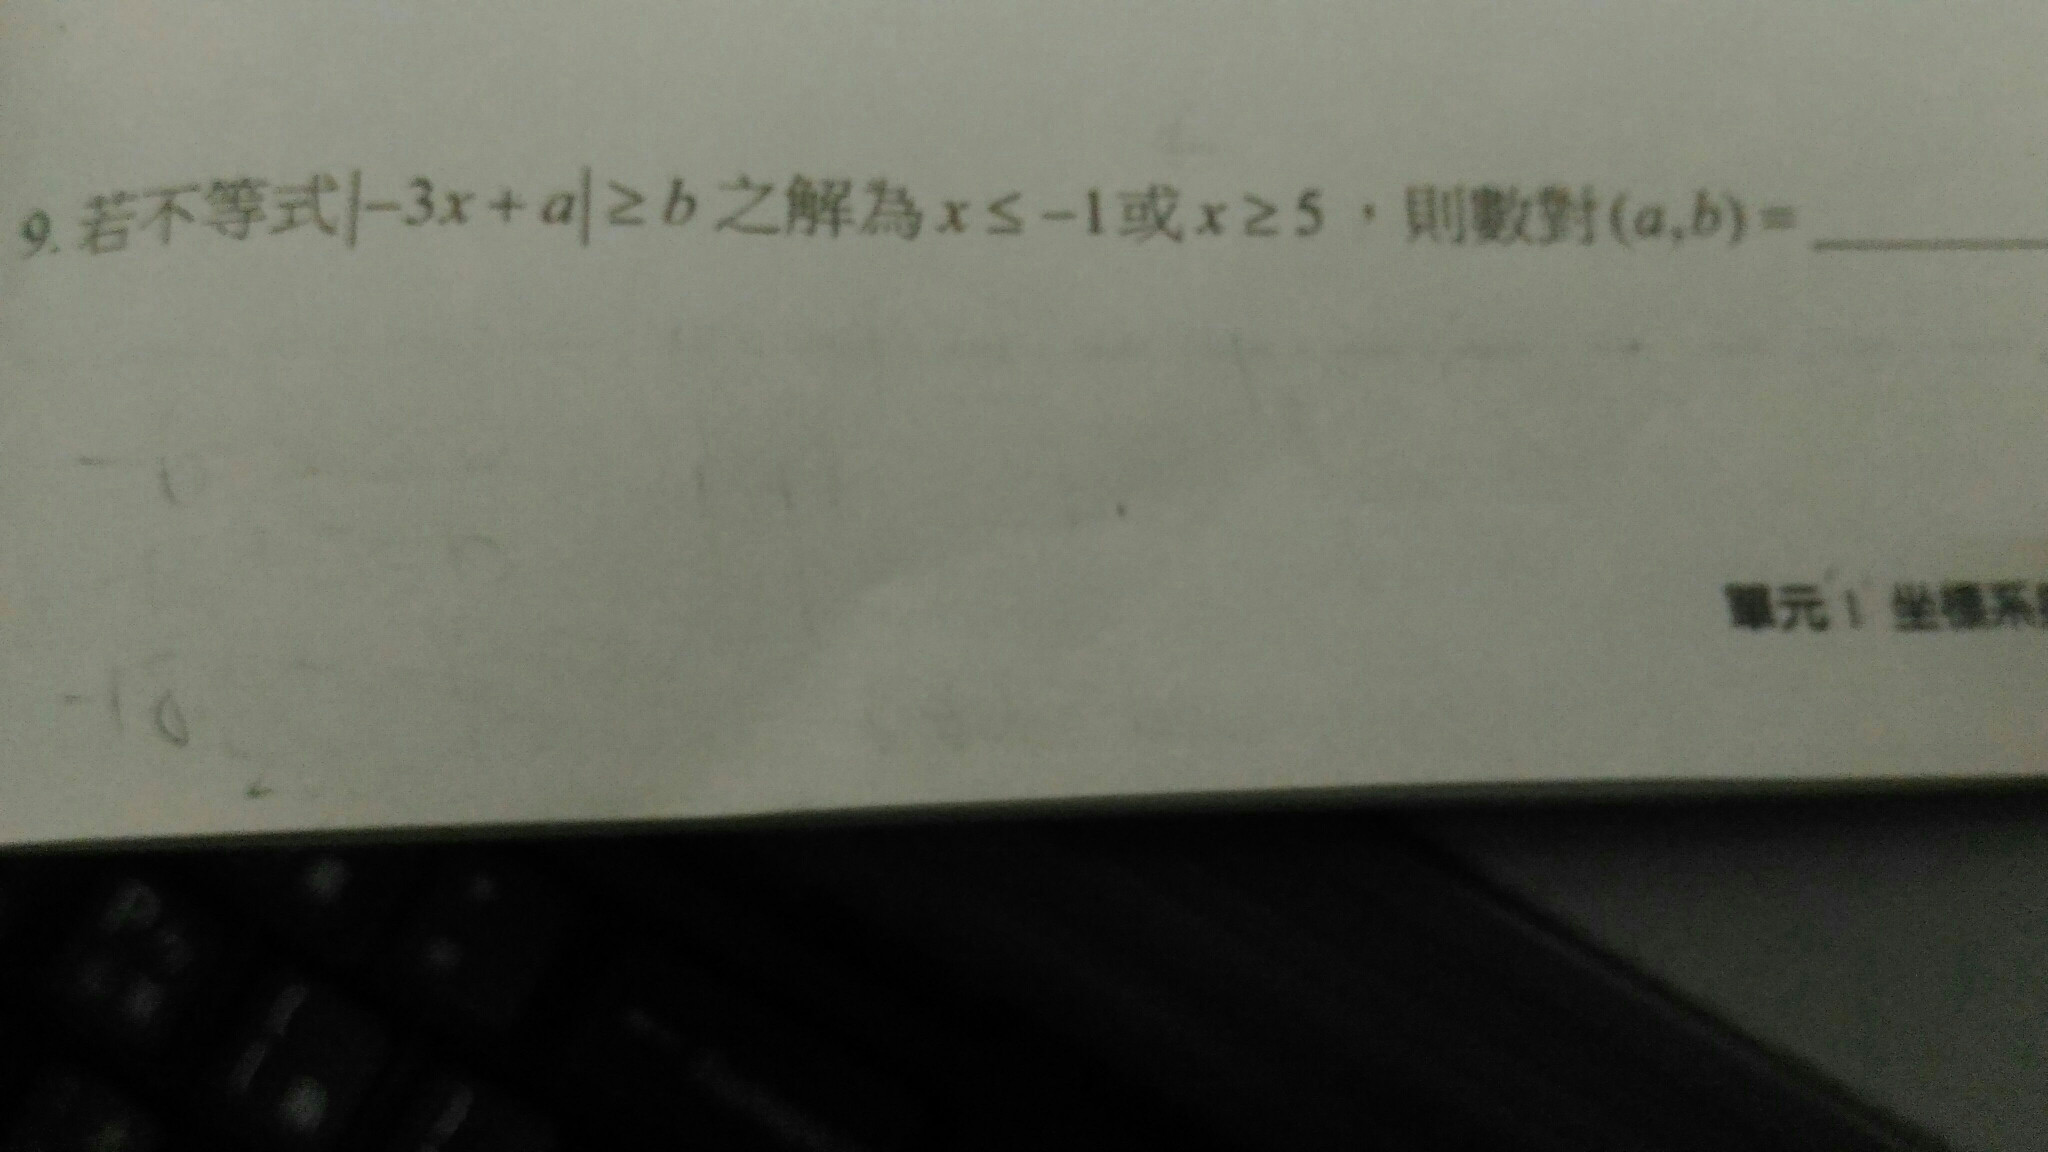 9. 若不等式|-3x+a|≥b之解為x≤-1或x≥5，則數對(a,b)=
單元1 坐標系
-18